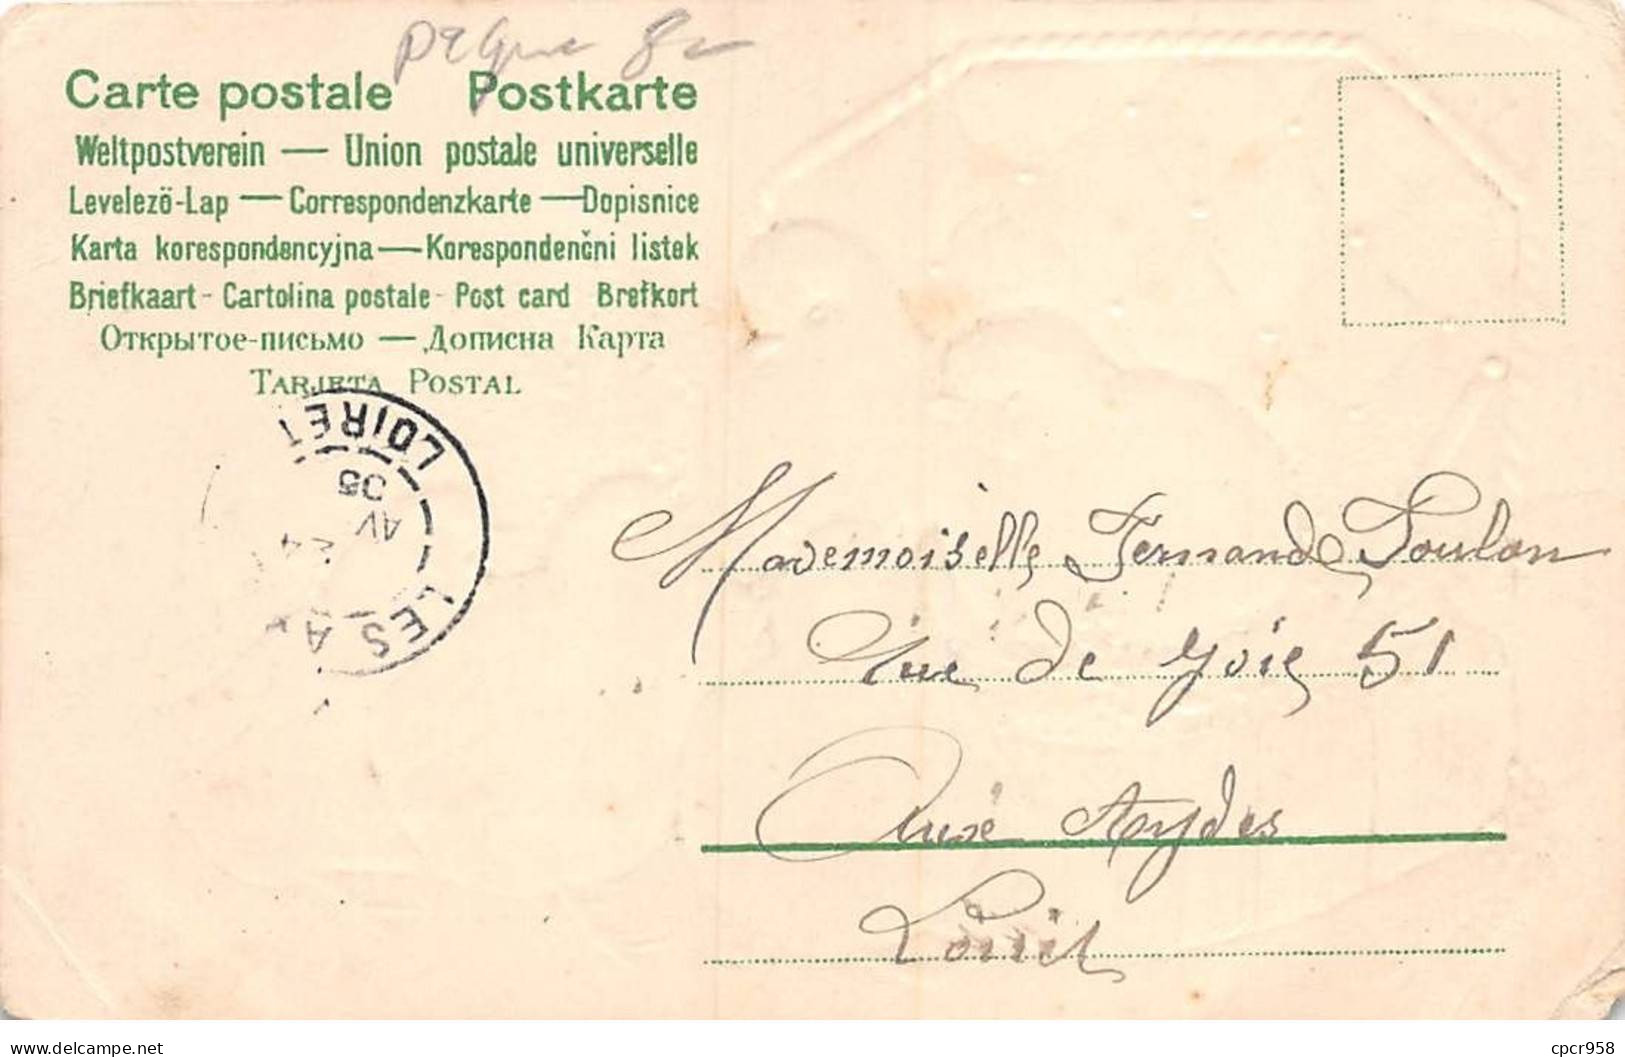 Carte postale Postkarte
Weltpostverein — Union postale universelle
Levelező-Lap — Correspondenzkarte — Dopisnice
Karta korespondencyjna — Korespondenčni listek
Briefkaart - Cartolina postale - Post card Brefkort
Открытое-письмо — Дописна Карта
TARJETA POSTAL
LOIRET
05
AV
24
LES A
Mademoiselle Fernande Poulon
Rue de Joie 51
Auxé Aydes
Loiret
www.delcampe.net
cpcr958